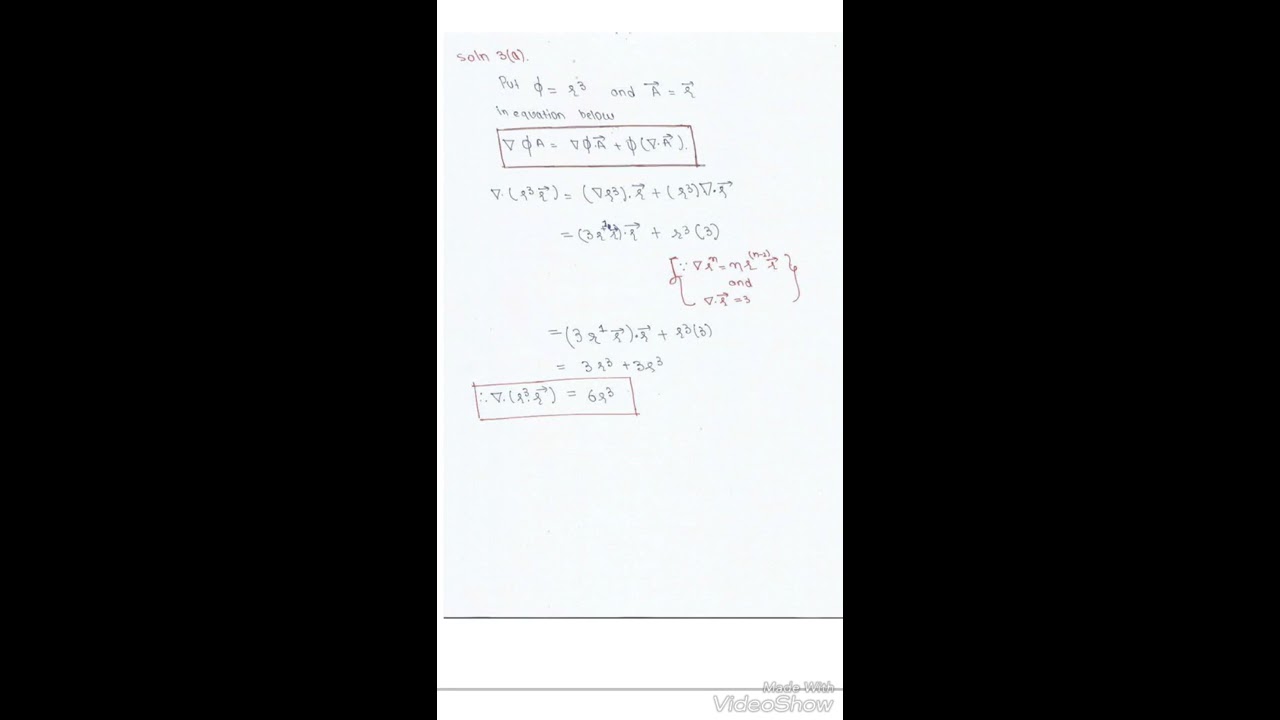 Soln 3(a).
Put ϕ = r³ and A⃗ = r⃗
in equation below
∇ϕA = ∇ϕ.A⃗ + ϕ(∇.A⃗).
∇.(r³r⃗) = (∇r³).r⃗ + (r³)∇.r⃗
= (3r¹r⃗).r⃗ + r³(3)
[∵ ∇rⁿ = n r⁽ⁿ⁻²⁾ r⃗
and
∇.r⃗ = 3
= (3r¹r⃗).r⃗ + r³(3)
= 3r³ + 3r³
∴ ∇.(r³.r⃗) = 6r³
Made With
VideoShow